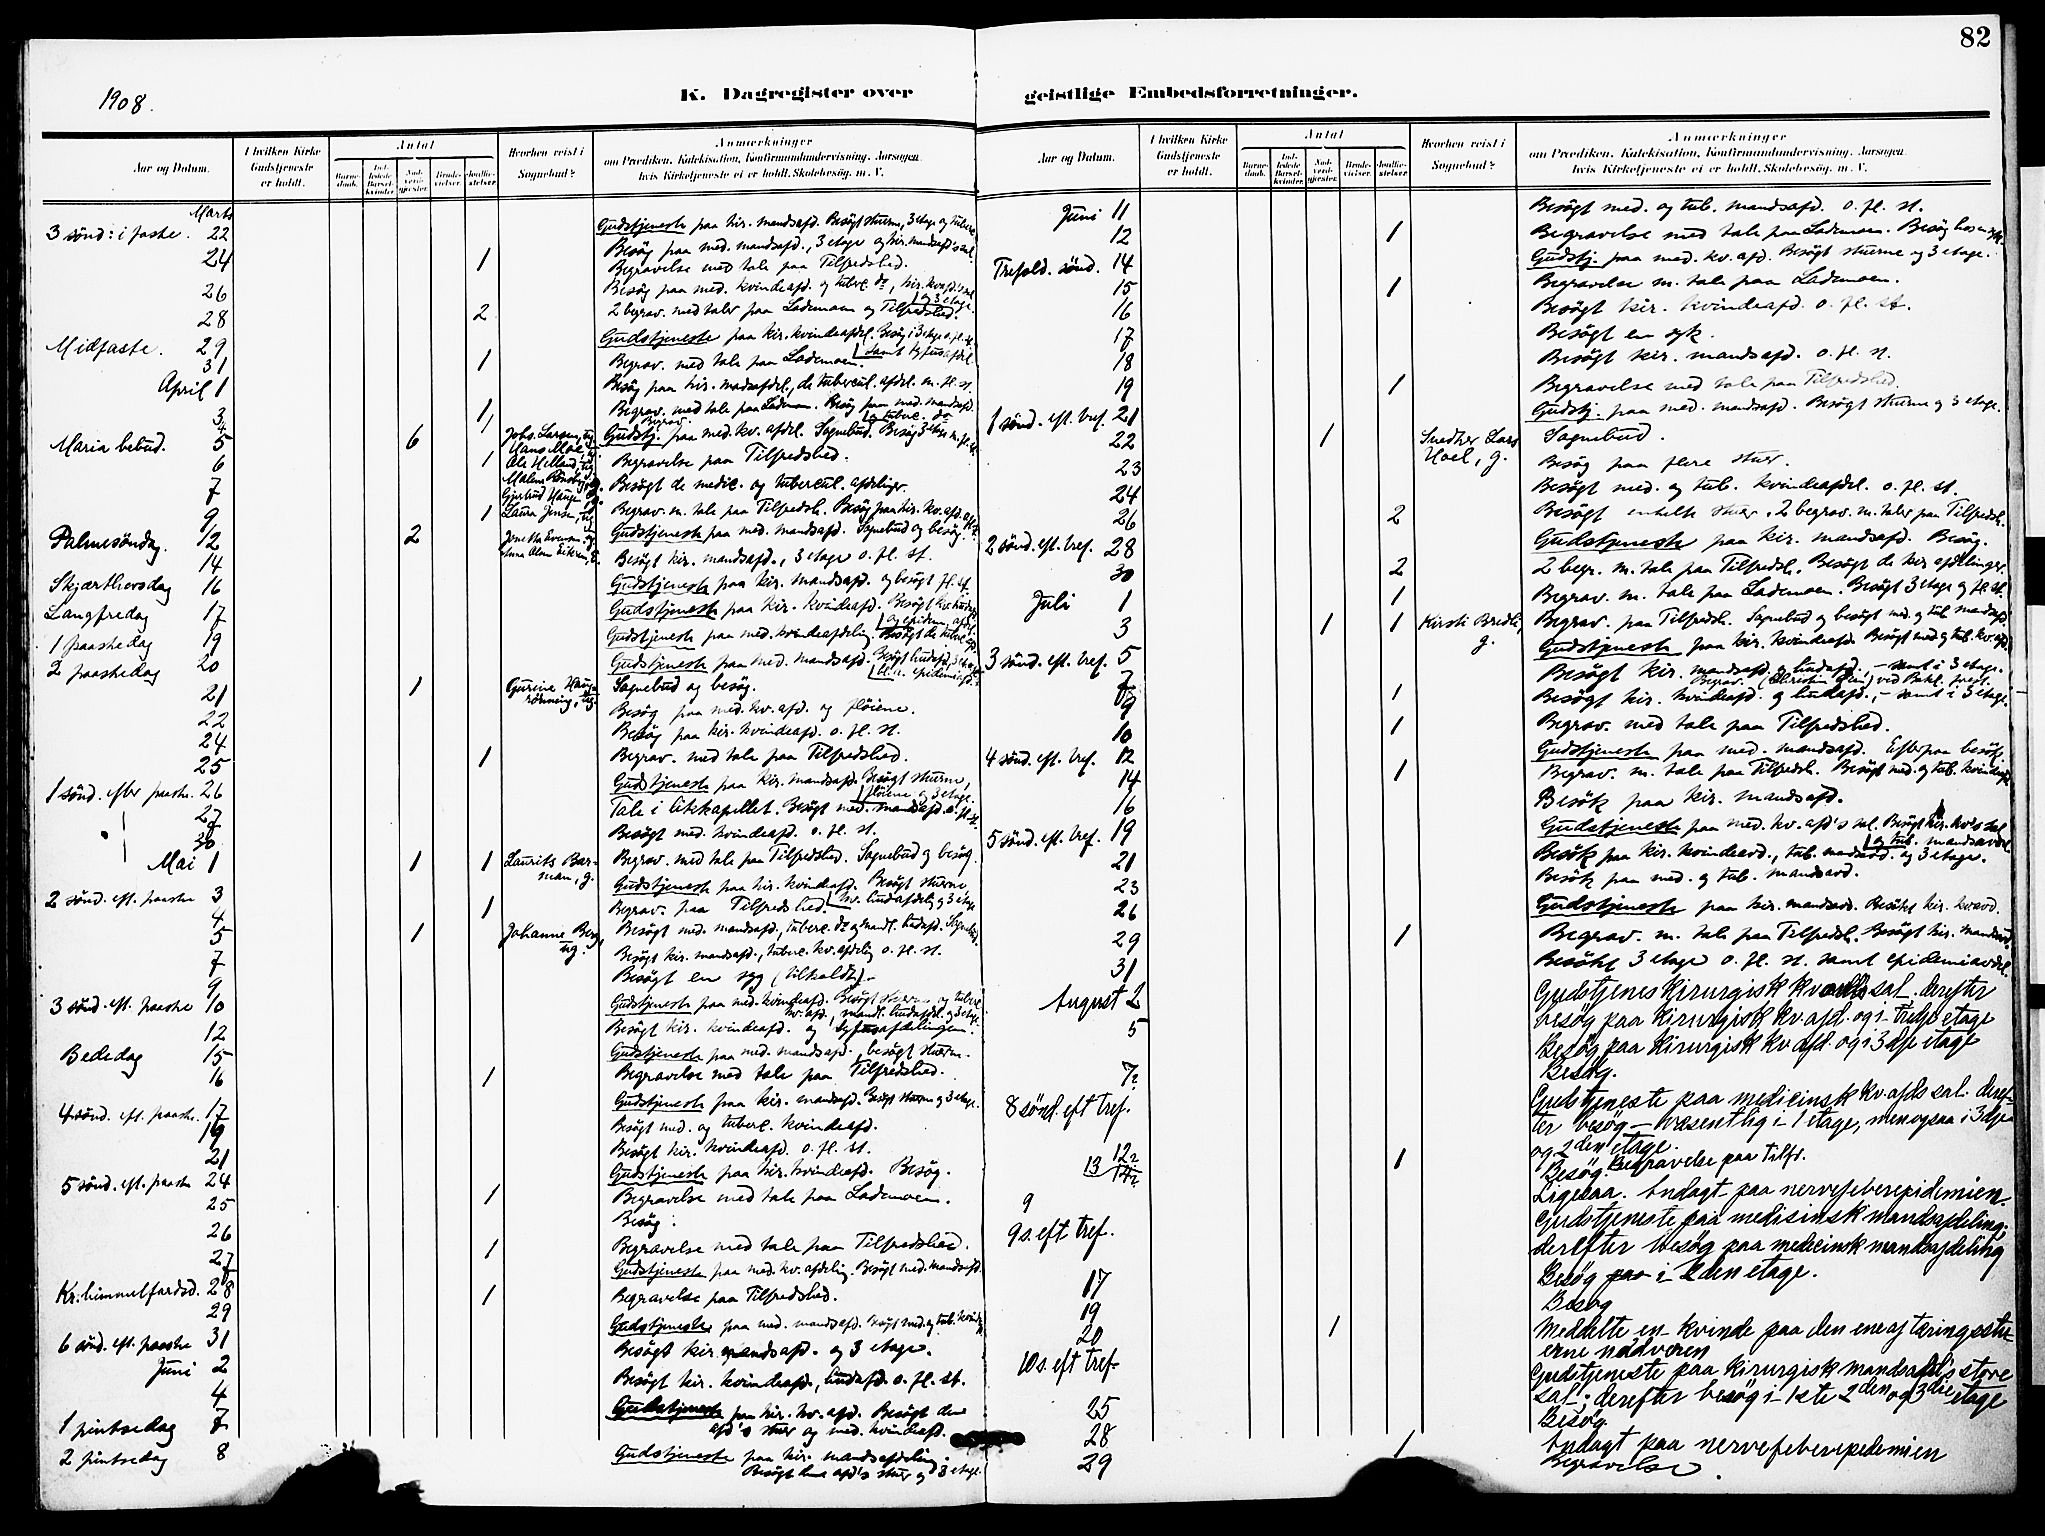 82
1908.
K. Dagregister over geistlige Embedsforretninger.
Aar og Datum.
I hvilken Kirke Gudstjeneste er holdt.
Antal
Barnedaab.
Indledede Barselkvinder.
Nadverdgjester.
Brudevielser.
Jordfæstelser.
Hvorhen reist i Sognebud?
Anmærkninger
om Prædiken, Katekisation, Konfirmandundervisning, Aarsagen,
hvis Kirketjeneste ei er holdt, Skolebesøg, m. V.
Marts
3 sønd: i faste. 22 Gudstjeneste paa kir. mandsafd. Besøgt stuerne, 3 etage og tuberc.
24 Besøg paa med. mandsafd., 3 etage og kir. mandsafd's sal.
1 Begravelse med tale paa Tilfredshed.
26 Besøg paa med. kvindeafd. og tuberc. do, kir. kv.afd.'s sal og 3 etage.
28 2 2 begrav. med taler paa Lademoen og Tilfredshed.
Midfaste. 29 Gudstjeneste paa kir. kvindeafdel. Besøg i 3 etage o. fl. st. samt tyfusafdel.
31 1 Begrav. med tale paa Lademoen.
April 1 Besøg paa kir. mandsafdel., de tubercul. afdel. m. fl. st.
3 1 Begrav. med tale paa Lademoen. Besøg paa med. mandsafd. og tuberc. do
4 1 Begrav.
Maria bebud. 5 6 Johs. Larsen, ug. Gudstj. paa med. kv. afdel. Sognebud. Besøg 3 etage m. fl. st.
Hans Moe,
6 1 Ole Helland, ug. Begravelse paa Tilfredshed.
7 Besøgt de medic. og tubercul. afdelinger.
Laura Jensen, ug.
9 1 Begrav. m. tale paa Tilfredsh. Besøg paa kir. kv. afd.
Palmesøndag. 12 2 Gudstjeneste paa med. mandsafd. Sognebud og besøg.
14 Besøgt kir. mandsafd., 3 etage o. fl. st.
Skjærthorsdag 16 Gudstjeneste paa kir. mandsafd. og besøgt fl. st.
Langfredag 17 Gudstjeneste paa kir. kvindeafd. Besøgt kv. hudafd. og epidem. afdel.
1 paaskedag 19 Gudstjeneste paa med. kvindeafdeling. Besøgt de tuberc. afd.
2 paaskedag 20 Gudstjeneste paa med. mandsafd. Besøgt hudafd., 3 etage
21 1 Gurine Haugrønning, ug. Sognebud og besøg.
22 Besøg paa med. kv. afd. og fløiene.
24 Besøg paa kir. kvindeafd. o. fl. st.
25 1 Begrav. med tale paa Tilfredshed.
1 sønd. efter paaske. 26 Gudstjeneste paa kir. mandsafd. Besøgt stuerne, fløiene og 3 etage.
27 Tale i likkapellet. Besøgt med. mandsafd. o. fl. st.
30 Besøgt med. kvindeafd. o. fl. st.
Mai 1 1 1 Laurits Barman, g. Begrav. med tale paa Tilfredshed. Sognebud og besøg.
2 sønd. eft. paaske 3 Gudstjeneste paa kir. kvindeafd. Besøgt stuerne, kv. hudafdeling og 3 etage
4 1 Begrav. paa Tilfredshed.
5 1 Johanne Berg, ug. Besøgt med. mandsafd., tuberc. do og mandl. hudafd. Sognebud.
7 Besøgt kir. mandsafd., tuberc. kv. afdeling o. fl. st.
9 Besøgt en syg (tilkaldt).
3 sønd. eft. paaske 10 Gudstjeneste paa med. kvindeafd. Besøgt stuerne og tuberc. kv. afd., mandl. hudafdel. og 3 etage.
12 Besøgt kir. kvindeafd. og tyfusafdelingen.
Bededag 15 Gudstjeneste paa med. mandsafd., besøgt stuerne.
16 1 Begravelse med tale paa Tilfredshed.
4 sønd. eft. paaske. 17 Gudstjeneste paa kir. mandsafd. Besøgt stuerne og 3 etage.
19 Besøgt med. og tuberc. kvindeafd.
21 Besøgt kir. kvindeafd. o. fl. st.
5 sønd. eft. paaske 24 Gudstjeneste paa kir. kvindeafd. Besøg.
25 1 Begravelse med tale paa Lademoen.
26 Besøg.
27 1 Begravelse med tale paa Tilfredshed.
Kr. himmelfardsd. 28 Gudstjeneste paa med. kv. afdeling. Besøgt med. mandsafd.
29 1 Begravelse paa Tilfredshed.
6 sønd. eft. paaske 31 Gudstjeneste paa med. mandsafd. Besøgt med. og tub. kvindeafd.
Juni 2 Besøgt kir. mandsafd. og 3 etage.
4 Besøgt kir. kvindeafd., hudafd. o. fl. st.
1 pintsedag 7 Gudstjeneste paa kir. kv. afd. Besøgt denne afd's stuer og med. kvindeafd.
2 pintsedag 8 Gudstjeneste paa kir. mandsafdeling. Besøgt denne afd's stuer og 3 etage.
Aar og Datum.
I hvilken Kirke Gudstjeneste er holdt.
Antal
Barnedaab.
Indledede Barselkvinder.
Nadverdgjester.
Brudevielser.
Jordfæstelser.
Hvorhen reist i Sognebud?
Anmærkninger
om Prædiken, Katekisation, Konfirmandundervisning, Aarsagen,
hvis Kirketjeneste ei er holdt, Skolebesøg, m. V.
Juni 11 Besøgt med. og tub. mandsafd. o. fl. st.
12 1 Begravelse med tale paa Lademoen. Besøg hos en syk.
Trefold. sønd. 14 Gudstj. paa med. kv. afd. Besøgt stuerne og 3 etage.
15 1 Begravelse m. tale paa Lademoen.
16 Besøgt kir. kvindeafd. o. fl. st.
17 Besøgt en syk.
18 Besøgt kir. mandsafd. o. fl. st.
19 1 Begravelse med tale paa Tilfredshed.
1 sønd. eft. tref. 21 Gudstj. paa med. mandsafd. Besøgt stuerne og 3 etage.
22 1 Snedker Lars Hoel, g. Sognebud.
23 Besøg paa flere stuer.
24 Besøgt med. og tub. kvindeafdel. o. fl. st.
26 2 Besøgt enkelte stuer. 2 begrav. m. taler paa Tilfredsh.
2 sønd. eft. tref. 28 Gudstjeneste paa kir. mandsafd. Besøg.
30 2 2 begr. m. tale paa Tilfredsh. Besøgt de kir. afdelinger.
Juli 1 1 Begrav. m. tale paa Lademoen. Besøgt 3 etage og fl. st.
3 1 1 Kirsti Bredli, g. Begrav. paa Tilfredsh. Sognebud og besøgt med. og tub. mandsafd.
3 sønd. eft. tref. 5 Gudstjeneste paa kir. kvindeafd. Besøgt med. og tub. kv. afd.
7 Besøgt kir. mandsafd. og hudafd., - samt i 3 etage.
8 1 Begrav. ved Bakl. præst.
9 Besøgt kir. kvindeafd. og hudafd., - samt i 3 etage.
10 1 Begrav. med tale paa Tilfredshed.
4 sønd. eft. tref. 12 Gudstjeneste paa med. mandsafd. Efterpaa besøk.
14 1 Begrav. m. tale paa Tilfredsh. Besøgt med. og tub. kvindeafd.
16 Besøk paa kir. mandsafd.
5 sønd. eft. tref. 19 Gudstjeneste paa med. kv. afd's sal. Besøgt kir. kv.s sal og tub. mandsavdel.
21 Besøk paa kir. kvindeavd., tub. mandsavd. og 3 etage.
23 Besøk paa med. og tub. mandsavd.
26 Gudstjeneste paa kir. mandsavd. Besøkt kir. kv.avd.
29 1 Begrav. m. tale paa Tilfredsh. Besøgt kir. mandsavd.
31 Besøkt 3 etage o. fl. st. samt epidemiavdel.
August 2 Gudstjenes kirurgisk kv afds sal. derefter
besøg paa kirurgisk kv. afd. og i tredje etage
5 Besøg paa kirurgisk kv afd. og i 3dje etage
7 Besøg.
8 sønd. eft tref. Gudstjeneste paa medicinsk kv. afds sal. derefter
besøg – væsentlig i 1 etage, men ogsaa i 3dje
og 2den etage.
12 Besøg.
13 1 Begravelse paa Tilfr.
14 Ligesaa. Andagt paa nervefeberepidemien.
9
9 s. eft tref. Gudstjeneste paa medisinsk mandsafdeling;
derefter besøg paa medicinsk mandsafdeling
17 Besøg paa i 2den etage.
19 Besøg
20 1 Meddelte en kvinde paa den ene af tæringsstuerne
nadveren
10 s. eft tref. Gudstjeneste paa kirurgisk mandsafd's store
sal; derefter besøg i 1ste 2den og 3die etage
25 Besøg
28 Andagt paa nervefeberepedemien
29 1 Begravelse.